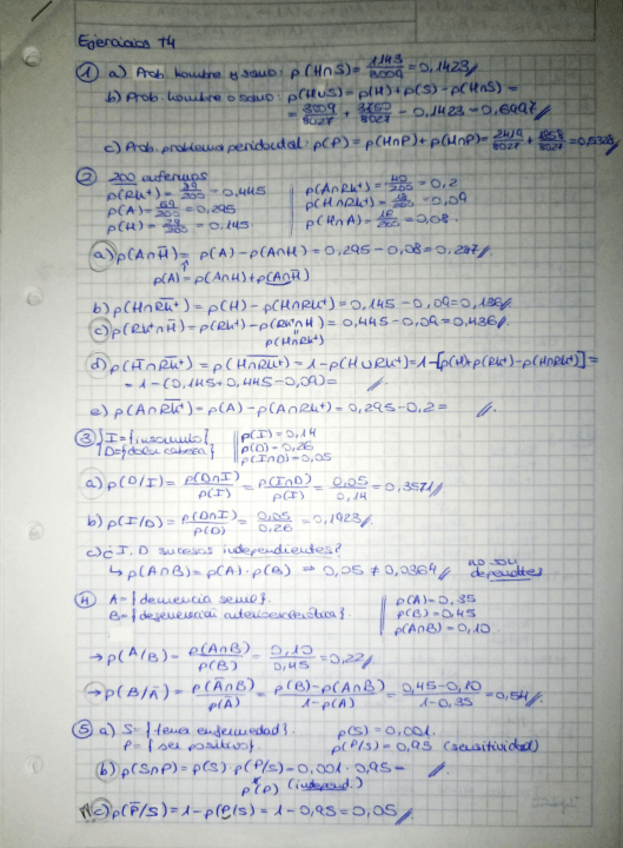 Ejercicios T4
① a) Prob. hombre y sano: p(H∩S) = 1143/8009 = 0,1423
b) Prob. hombre o sano: p(H∪S) = p(H) + p(S) - p(H∩S) =
- 0,1423 = 0,6997
c) Prob. problema peridontal: p(P) = p(H∩P) + p(H∩P) =
② 200 enfermos
p(Rh⁺) = 89/200 = 0,445
p(A∩Rh⁺) = 40/200 = 0,2
p(A) = 59/200 = 0,295
p(H∩Rh⁺) = 18/200 = 0,09
p(H) = 29/200 = 0,145
p(H∩A) = 16/200 = 0,08
a) p(A∩H̄) = p(A) - p(A∩H) = 0,295 - 0,08 =
p(A) = p(A∩H) + p(A∩H̄)
b) p(H∩R̄h̄⁺) = p(H) - p(H∩Rh⁺) = 0,145 - 0,09 = 0,136
c) p(Rh⁺∩H̄) = p(Rh⁺) - p(Rh⁺∩H) = 0,445 - 0,09 = 0,436
p(H∩Rh⁺)
d) p(H̄∩R̄h̄⁺) = p(H∩Rh⁺) = 1 - p(H∪Rh⁺) = 1 - [p(H) + p(Rh⁺) - p(H∩Rh⁺)] =
= 1 - (0,145 + 0,445 - 0,09) =
e) p(A∩R̄h̄⁺) = p(A) - p(A∩Rh⁺) = 0,295 - 0,2 =
③ I = {insomnio} p(I) = 0,14
D = {dolor cabeza} p(D) = 0,26
p(I∩D) = 0,05
a) p(D/I) = p(D∩I)/p(I) = p(I∩D)/p(I) = 0,05/0,14 = 0,3571
b) p(I/D) = p(D∩I)/p(D) = 0,05/0,26 = 0,1923
c) ¿I, D sucesos independientes?
↳ p(A∩B) = p(A) · p(B) ⇒ 0,05 ≠ 0,0364 no son
dependientes
④ A = {demencia senil}. p(A) = 0,35
B = {degeneración arterioesclerótica}. p(B) = 0,45
p(A∩B) = 0,10
→ p(A/B) = p(A∩B)/p(B) = 0,10/0,45 = 0,22
→ p(B/Ā) = p(Ā∩B)/p(Ā) = p(B) - p(A∩B)/1 - p(A) = 0,45 - 0,10/1 - 0,35 = 0,54
⑤ a) S = {tener enfermedad}. p(S) = 0,001.
P = {ser positivo}. p(P/S) = 0,95 (sensitividad)
b) p(S∩P) = p(S) · p(P/S) = 0,001 · 0,95 =
p(P) (independ.)
c) p(P̄/S) = 1 - p(P/S) = 1 - 0,95 = 0,05